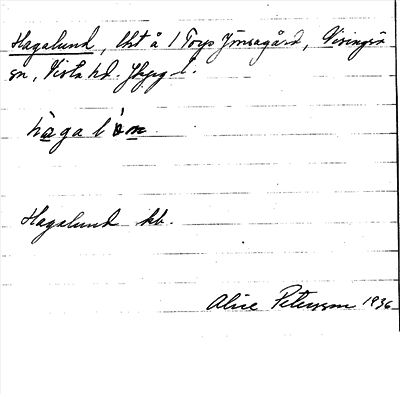 Hagalund, lht å 1 Torp Jönsagård, Visingsö
sn, Vista hd. Jkpg l.
hagalun
Hagalund kb.
Alice Petersson 1936